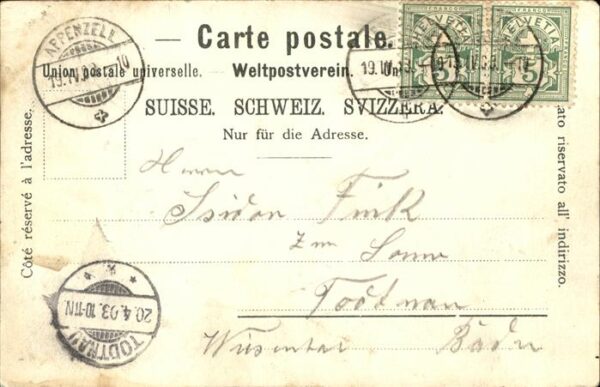 Carte postale.
Union postale universelle. — Weltpostverein. — Un
SUISSE. SCHWEIZ. SVIZZERA.
Nur für die Adresse.
Côté réservé à l'adresse.
ato riservato all' indirizzo.
APPENZELL
19.IV.03. 10
FRANCO
HELVETIA
5
FRANCO
HELVETIA
5
Herrn
Isidor Fink
Zur Sonne
Todtnau
Wiesental Baden
20.4.03.10-11N.
TODTNAU